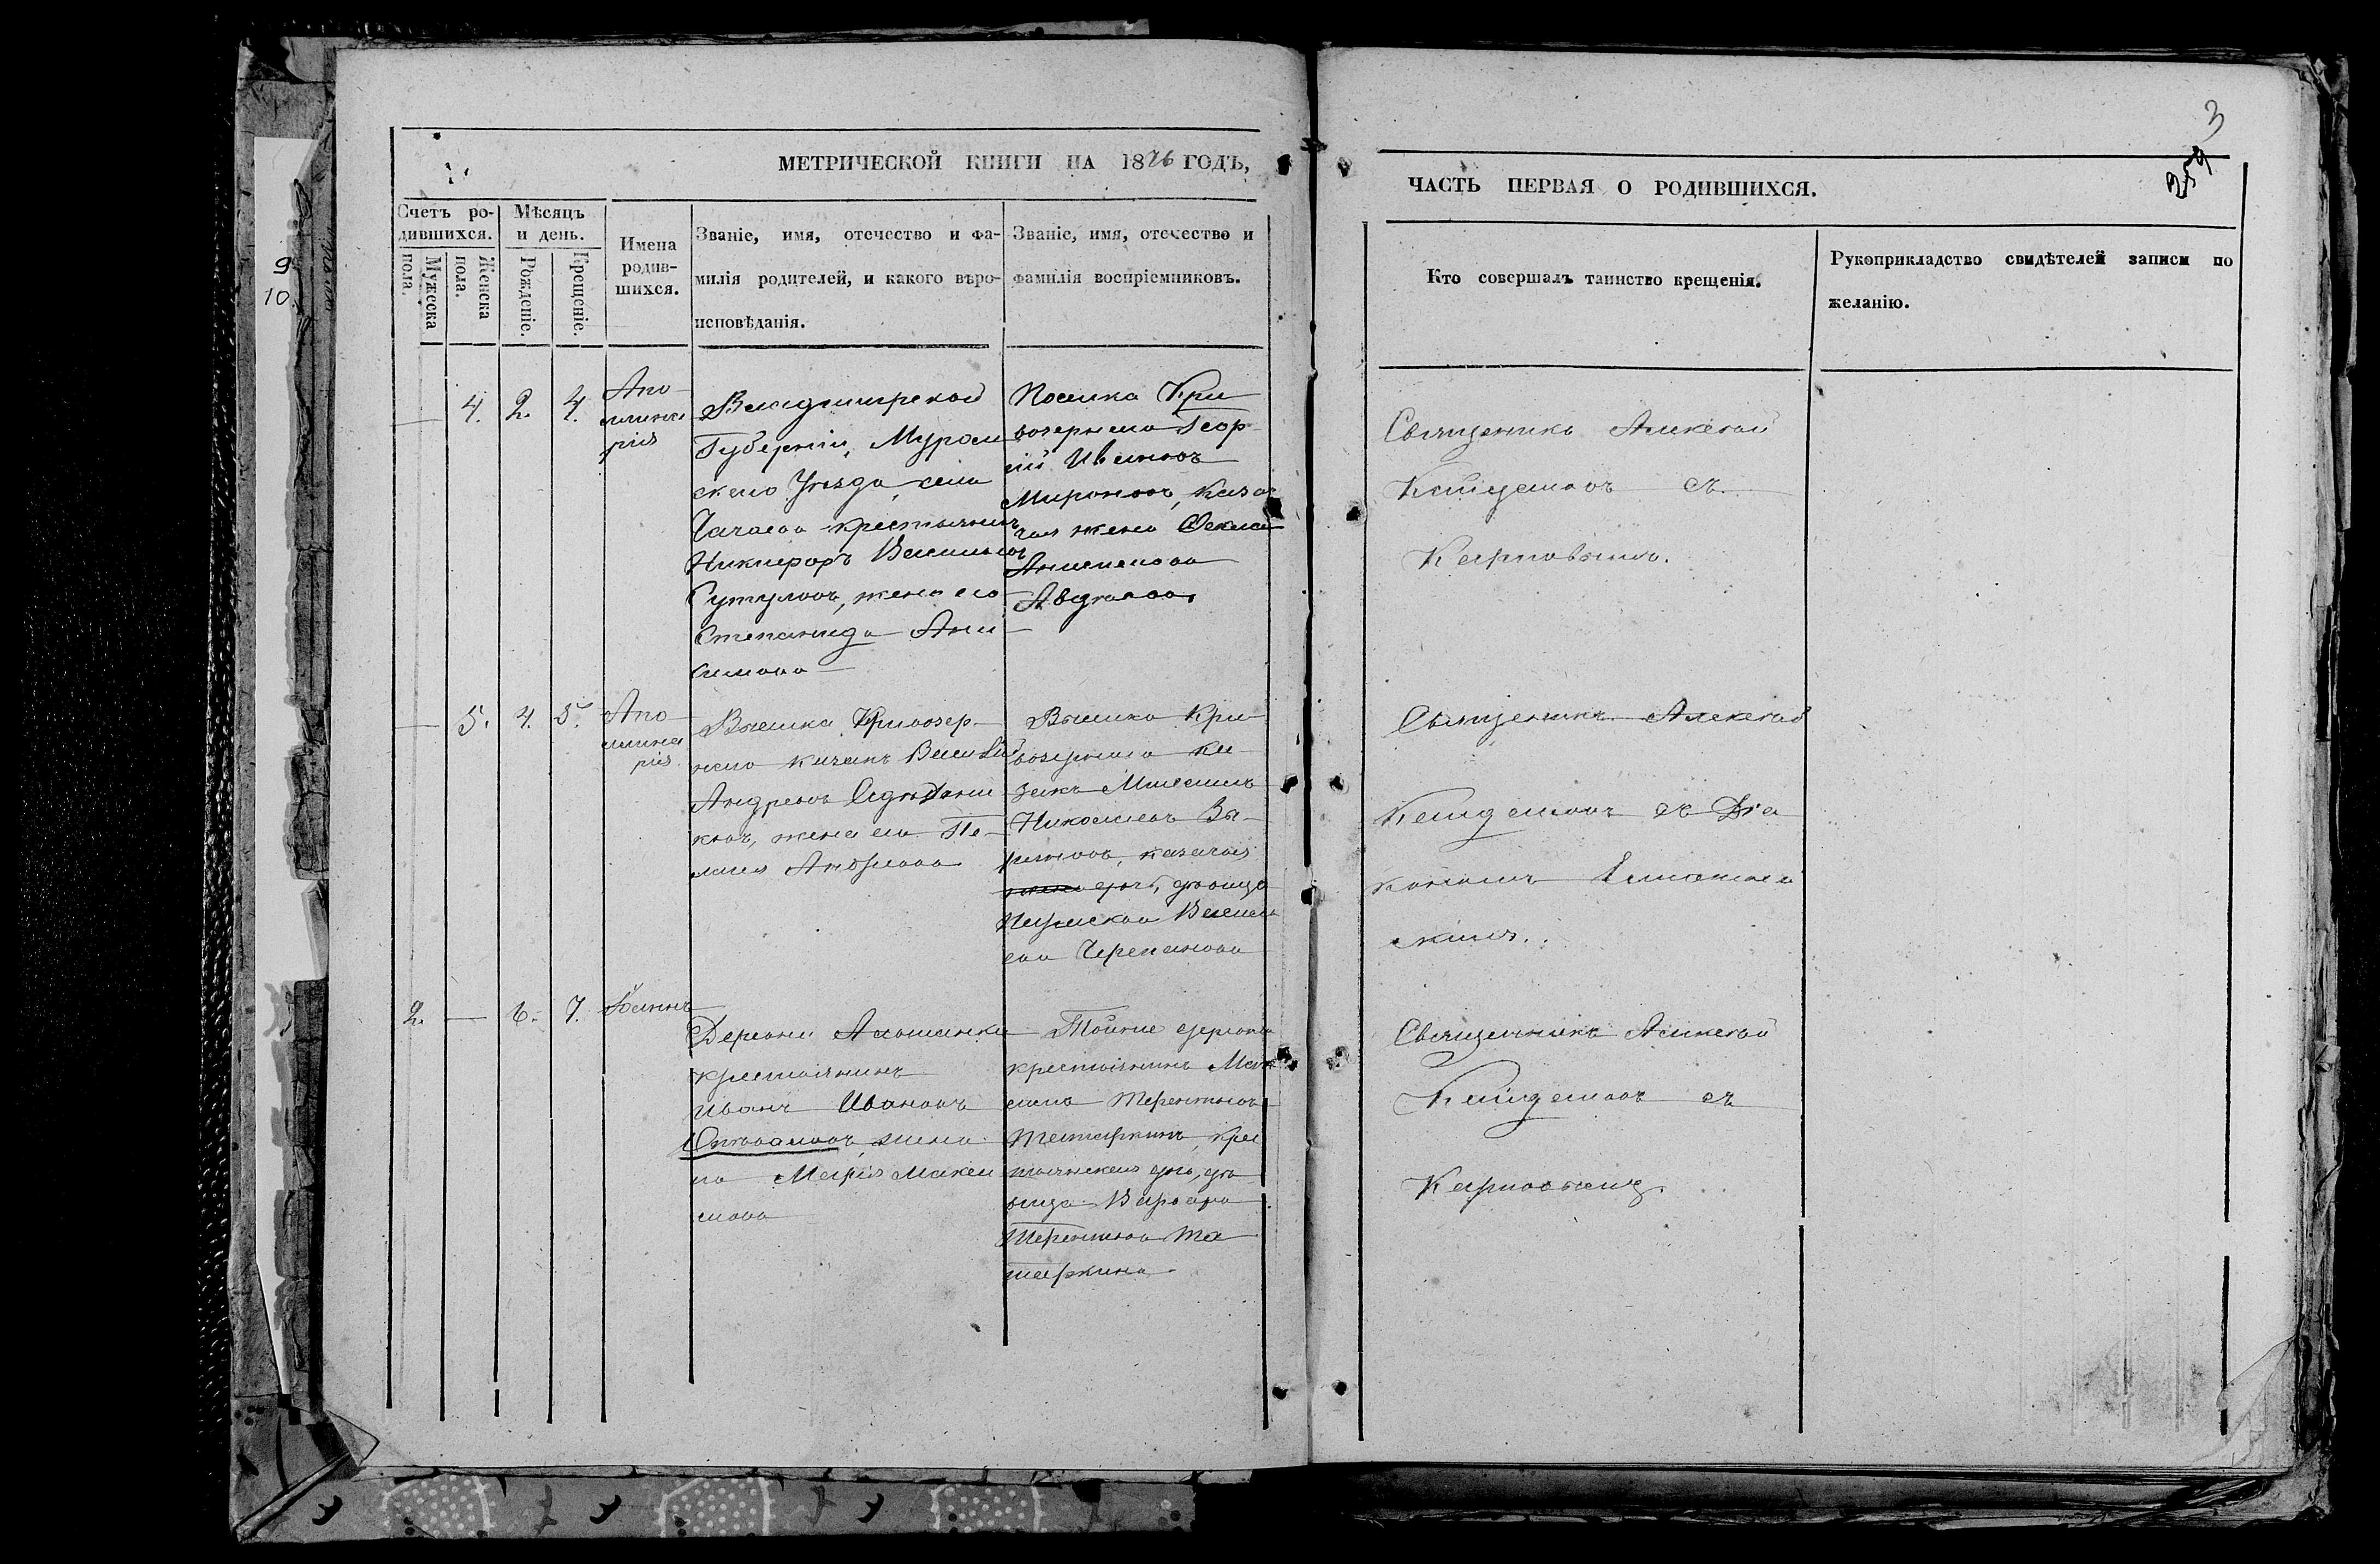 МЕТРИЧЕСКОЙ КНИГИ НА 1876 ГОДЪ,
Счетъ ро-
дившихся.
Мужеска
пола.
Женска
пола.
Мѣсяцъ
и день.
Рожденіе.
Крещеніе.
Имена
родив-
шихся.
Званіе, имя, отечество и фа-
милія родителей, и какого вѣро-
исповѣданія.
Званіе, имя, отечество и
фамилія воспріемниковъ.
9
10.
4. 2. 4.
Апо
линa
рія
Владимирской
Губерніи, Муром
скаго Уѣзда, села
крестьянинъ
Никифоръ Васильевъ
Сутуловъ, жена его
Степанида Ани
симова
Поселка Кри
воозернаго Геор
гій Ивановъ
Мироновъ, казач
чья жена Фекла
Авдѣева
5. 4. 5.
Апо
линa
рія
Криоозер
наго казакъ Василій
Андреевъ
жена его Пе
лагія Андреева
Кри
воозернаго ка
закъ Михаилъ
Николаевъ Зы
ряновъ, казачья
дочь, дѣвица
Василь
ева Черепанова
2. — 6. 7.
Іоаннъ
Деревни
крестьянинъ
Иванъ Ивановъ
жена
его Марія Макси
мова
Тойже деревни
крестьянинъ Мак
симъ Терентьевъ
Татаркинъ, крес
тьянская дочь, дѣ
вица Варвара
Терентьева Та
таркина.
3
259
ЧАСТЬ ПЕРВАЯ О РОДИВШИХСЯ.
Кто совершалъ таинство крещенія.
Рукоприкладство свидѣтелей записи по
желанію.
Священникъ Алексѣй
Кайдаловъ съ
Карповымъ.
Священникъ Алексѣй
Кайдаловъ съ Діа
кономъ
скимъ.
Священникъ Алексѣй
Кайдаловъ съ
Карповымъ.